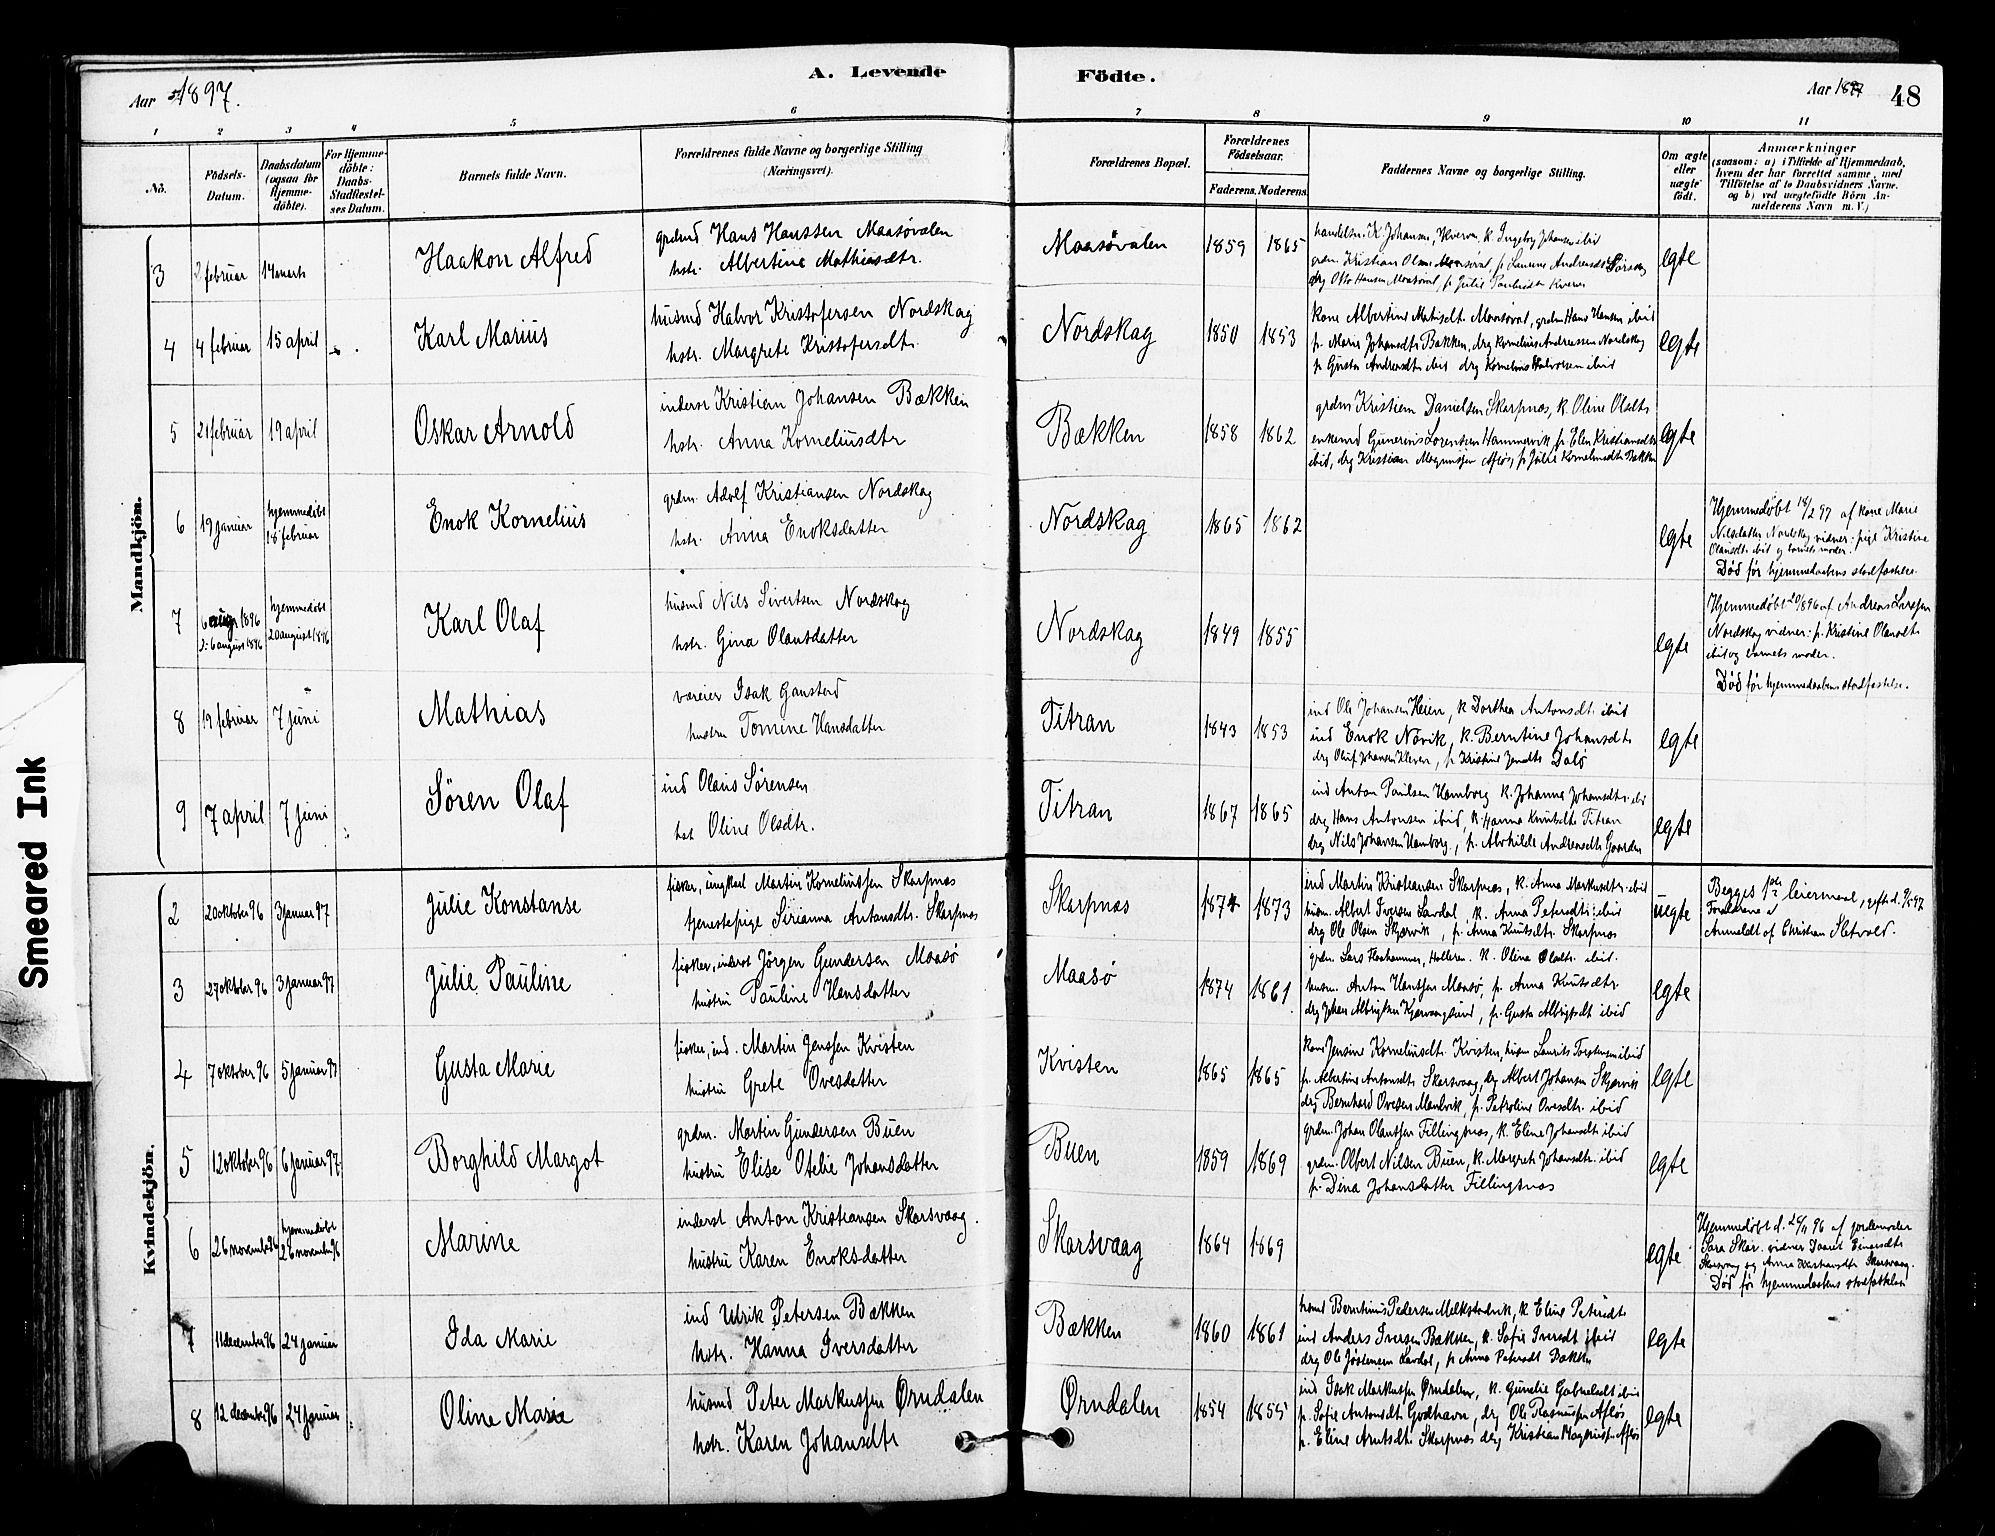 A. Levende Födte.
Aar 1897.
Aar 1897
48
1 2 3 4 5 6 7 8 9 10 11
No.
Födsels-Datum.
Daabsdatum (ogsaa for Hjemme-döbte).
For Hjemme-döbte: Daabs-Stadfæstel-ses Datum.
Barnets fulde Navn.
Forældrenes fulde Navne og borgerlige Stilling (Næringsvei).
Forældrenes Bopæl.
Forældrenes Födselsaar.
Faderens. Moderens.
Faddernes Navne og borgerlige Stilling.
Om ægte eller uægte födt.
Anmærkninger
(saasom: a) i Tilfælde af Hjemmedaab, hvem der har forrettet samme, med Tilföielse af to Daabsvidners Navne, og b) ved uægtefödte Börn Anmelderens Navn m. V.)
Mandkjön.
3 2 februar 14 marts Haakon Alfred
grdmd Hans Hanssen Maasøvalen
hstr. Albertine Mathiasdtr.
Maasøvalen 1859 1865
egte
4 4 februar 15 april Karl Marius
husmd Halvor Kristofersen Nordskag
hstr. Margrete Kristofersdtr.
Nordskag 1850 1853
kone Albertine Matisdt. Maasøval, grdm Hans Hansen ibid
p. Marie Johansdtr Bækken, drg Kornelius Andreassen Nordskag
p Gusta Andreasdtr ibid drg Kornelius Halvorsen ibid
egte
5 21 februar 19 april Oskar Arnold
inderst Kristian Johansen Bækken
hstr. Anna Korneliusdtr
Bækken 1858 1862
grdm Kristian Danielsen Skarpnæs, k. Oline Olsdtr
enkemd Gunerius Lorentsen Hammervik, p. Elen Kristiansdtr
ibid, drg Kristian Magnussen Afløs, p Julie Korneliusdtr Bækken
egte
6 19 januar hjemmedøbt 18 februar Enok Kornelius
grdm. Adolf Kristiansen Nordskag
hstr. Anna Enoksdatter
Nordskag 1865 1862
egte
Hjemmedøbt 18/2 97 af kone Marie
Nilsdatter Nordskag vidner: pige Kristine
Olausdtr. ibid og barnets moder.
Død før hjemmedaabens stadfæstelse.
7 6 aug 1896 ɔ: 6 august 1896 hjemmedøbt 20 august 1896 Karl Olaf
husmd Nils Sivertsen Nordskag
hstr. Gina Olausdatter
Nordskag 1849 1855
egte
Hjemmedøbt 20/8 96 af Andreas Larssen
Nordskag vidner: p. Kristine Olausdtr.
ibid og barnets moder.
Død før hjemmedaabens stadfæstelse.
8 19 februar 7 juni Mathias
væreier Isak Gaustad
hustru Tomine Hansdatter
Titran 1843 1853
ind Ole Johansen Heien, k Dorthea Antonsdtr. ibid
ind Enok Novik, k. Berntine Johansdtr
egte
9 7 april 7 juni Søren Olaf
ind Olaus Sørensen
hst Oline Olsdtr.
Titran 1867 1865
ind Anton Paulsen Hamborg k. Johanna Johansdtr. ibid
drg Hans Antonsen ibid, k. Hanna Knutsdtr Titran
drg Nils Johansen Hamborg, p. Alvhilde Andreasdtr Gaarden
egte
Kvindekjön.
2 20 oktober 96 3 januar 97 Julie Konstanse
fisker, ungkarl Martin Korneliussen Skarpnæs
tjenestepige Sirianna Antonsdtr. Skarpnæs
Skarpnæs 1874 1873
ind Martin Kristiansen Skarpnæs, k. Anna Markusdtr. ibid
husm. Albert Iversen Lavdal, k. Anna Petersdtr. ibid
drg Ole Olsen Skjærvik, p. Anna Knutsdtr. Skarpnæs
uegte
Begges 1ste leiermaal, gift d.
Forældrene
Anmeldt af Christian Sletvold.
3 27 oktober 96 3 januar 97 Julie Pauline
fisker, inderst Jørgen Gundersen Maasø
hustru Pauline Hansdatter
Maasø 1874 1861
husm. Anton Hansen Maasø, p. Anna Knutsdtr.
egte
4 7 oktober 96 5 januar 97 Gusta Marie
fisker, ind. Martin Jenssen Kvisten
hustru Grete Ovesdatter
Kvisten 1865 1865
kone Jensine Korneliusdtr. Kvisten, husm Laurits Torstensen ibid
p. Albertine Antonsdtr Skarsvaag, drg Albert Johansen Skjærvik
drg Bernhard Ovesen Maulvik, p. Petroline Ovesdtr. ibid
egte
5 12 oktober 96 6 januar 97 Borghild Margot
grdm. Morten Gundersen Buen
hustru Elise Otelie Johansdatter
Buen 1859 1869
grdm. Johan Olaussen Fillingsnæs, k. Eline Johansdtr ibid
grdm. Olbert Nilsen Buen, k. Margrete Johansdtr. ibid
p. Dina Johansdatter Fillingsnæs
egte
6 26 november 96 hjemmedøbt 26 november 96 Marine
inderst Anton Kristiansen Skarsvaag.
hustru Karen Enoksdatter
Skarsvaag 1864 1869
egte
Hjemmedøbt d. 26/11 96 af jordemoder
Sara Skar. vidner Daaret Einarsdtr
Skarsvaag og Anna Skarsvaag.
Død før hjemmedaabens stadfæstelse
7 11 december 96 24 januar Ida Marie
ind Ulrik Petersen Bækken
hstr. Hanna Iversdatter
Bækken 1860 1861
ind Anders Iversen Bækken, k. Sofie Iversdt ibid
drg Ole Jostensen Lavdal, p Anna Petersdt Bækken
egte
8 12 december 96 24 januar Oline Marie
husmd Peter Markussen Ørndalen
hstr. Karen Johansdtr
Ørndalen 1854 1855
ind Isak Markussen Ørndalen, k. Gunelie Gabrielsdt ibid
p. Sofie Antonsdtr Godhavn, drg Ole Rasmussen Afløs
p. Eline Arntsdtr. Skarpnæs drg Kristian Magnussen Afløs
egte
Smeared Ink